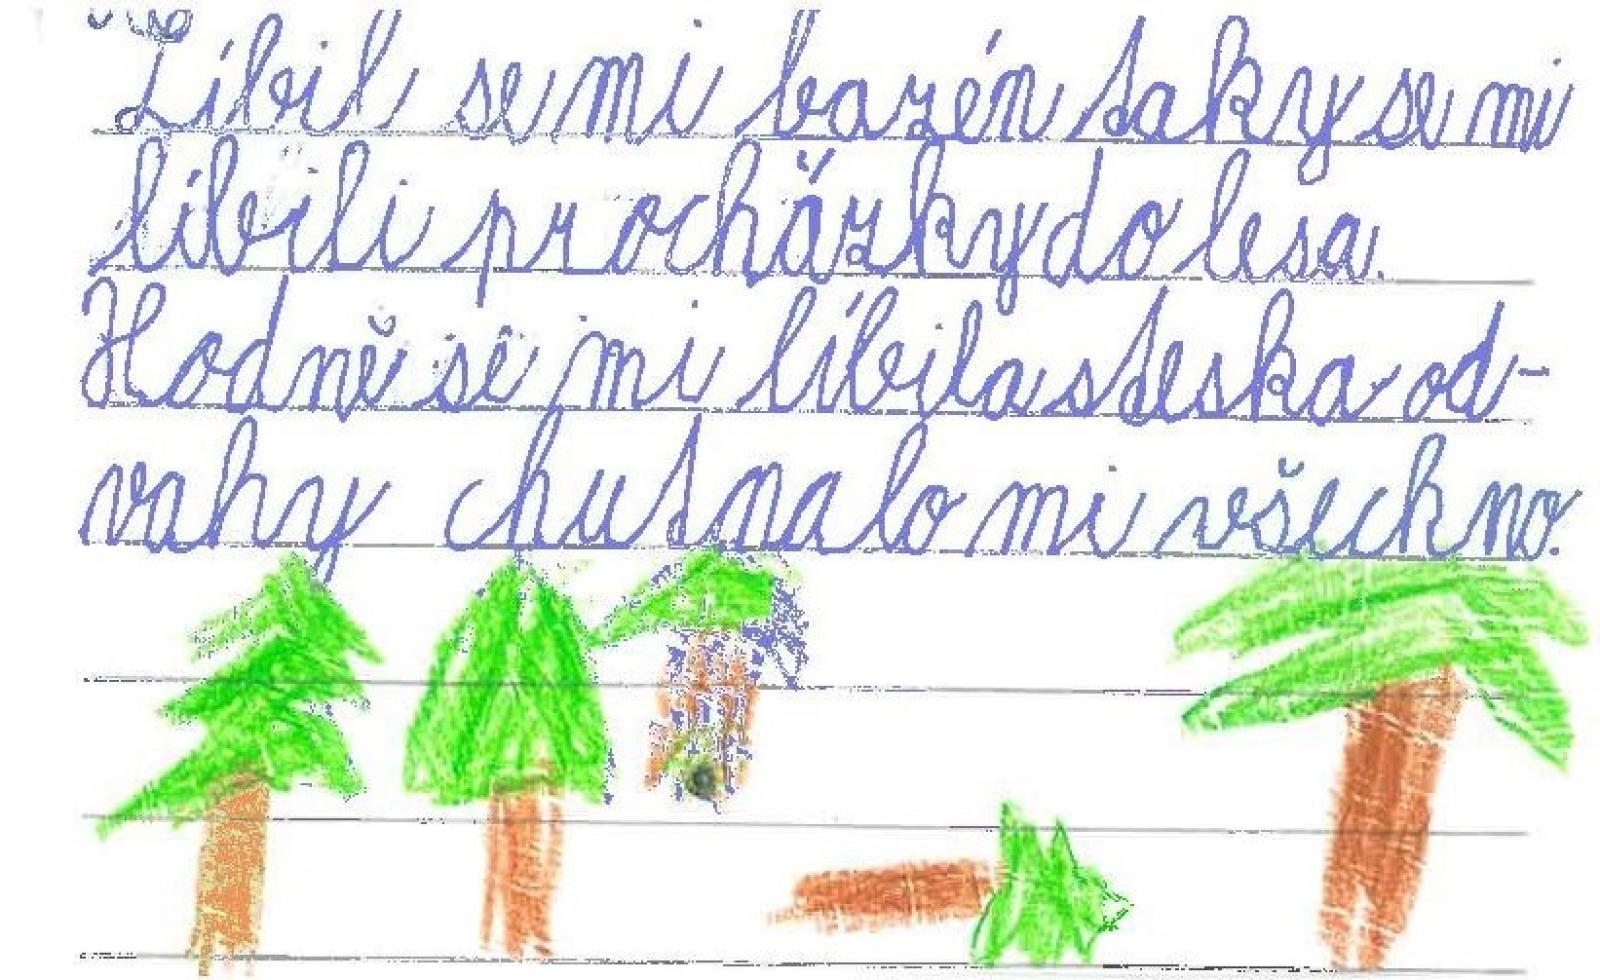 Líbil se mi bazén taky se mi
líbili procházky do lesa.
Hodně se mi líbila steska od-
vahy chutnalo mi všechno.